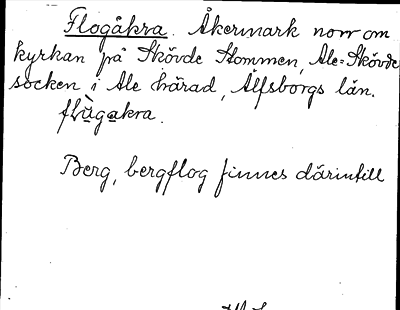 Flogåkra. Åkermark norr om
kyrkan på Skövde Stommen, Ale-Skövde
socken i Ale härad, Älfsborgs län.
flùgakra.
Berg, bergflog finnes därintill